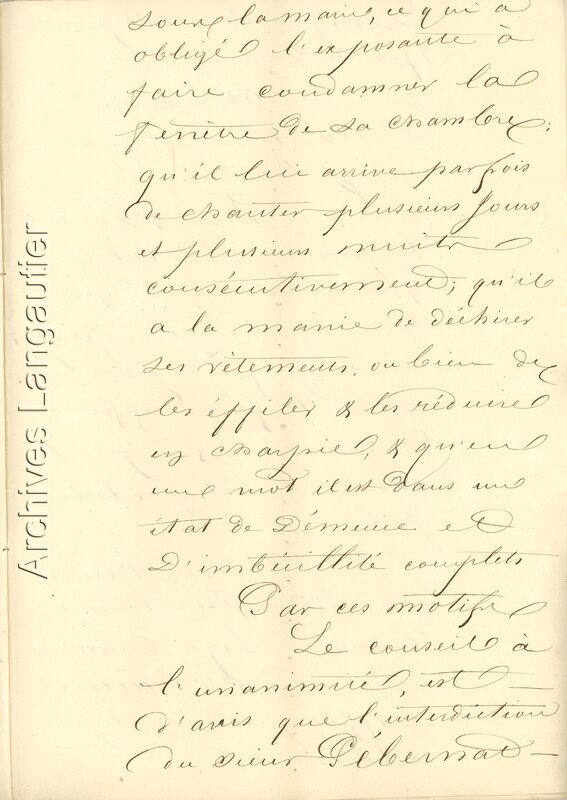 sous la main, ce qui a
obligé l'exposante à
faire condamner la
fenêtre de sa chambre;
qu'il lui arrive parfois
de chanter plusieurs jours
et plusieurs nuits
consécutivement; qu'il
a la manie de déchirer
ses vêtements, ou bien de
les éffiler & les réduire
en charpie, & qu'en
un mot il est dans un
état de Démence et
D'imbécillité complets
Par ces motifs
Le conseil à
l'unanimité, est
d'avis que l'interdiction
du sieur Pébernad
Archives Langautier